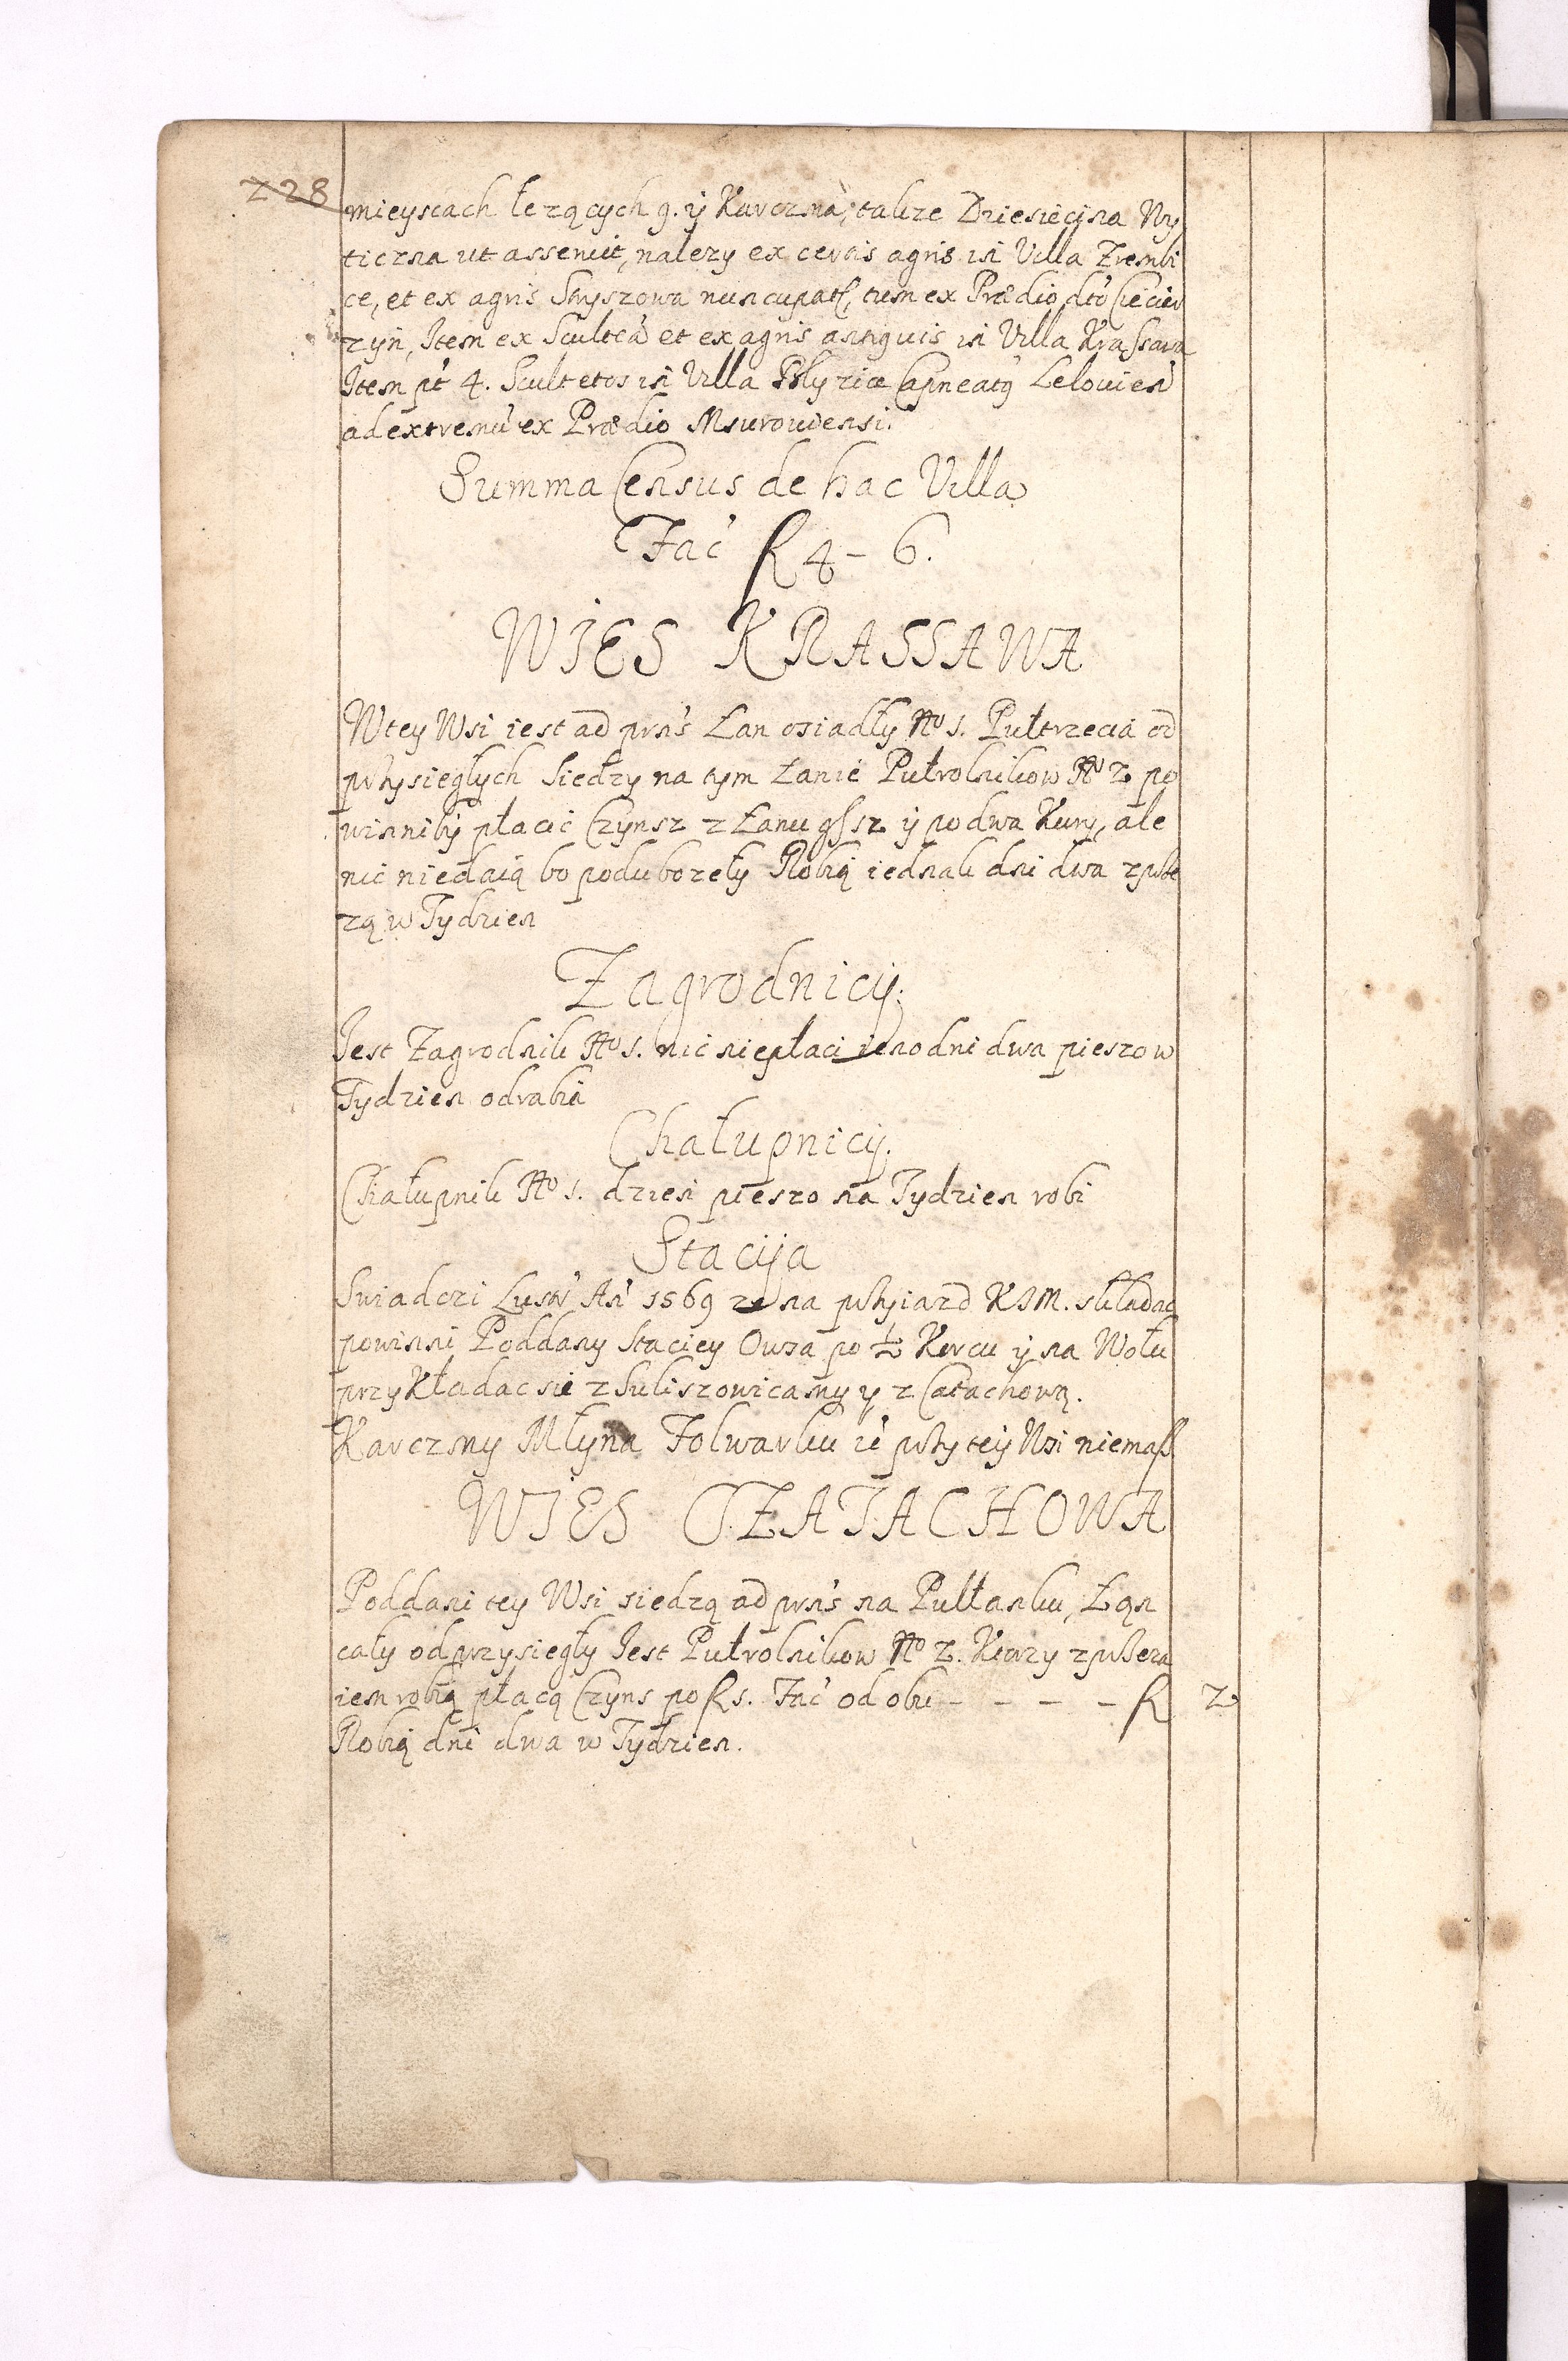 228
mieyscach lezących 9. y Karczma, takze Dziesięcjna Wy
ticzna ut asseruit, nalezy ex certis agris in Villa Zrembi
ce, et ex agris Stryszowa nuncupat, tum ex Prædio dto Cieciew
zyn, Item ex Scultea et ex agris antiquis in Villa Krassawa
Item pt 4. Scultetos in Villa Capneatg Lelovien
ad extremu ex Prædio Mzurowiensi.
Summa Census de hac Villa
Fac f 4 – 6.
WIES KRASSAWA
W tey Wsi iest ad prns Łan osiadły No 1. Pułtrzecia od
przysięgłych siedzy na tym Łanie Pułrolnikow No 2 po
winniby płacić Czynsz z Łanu gssz y po dwa Kury, ale
nic niedaią bo poduborzeły Robią iednak dni dwa zprze
rzą w Tydzien
Zagrodnicy.
Iest Zagrodnik No 1. nic niepłaci ieno dni dwa pieszo w
Tydzien odrabia
Chałupnicy.
Chałupnik No 1. dzien pieszo na Tydzien robi
Stacija
Swiadczi Lustr An 1569 ze na przyiazd KJM. składac
powinni Poddany Staciey Owsa po ½ Korcu y na Wołu
przykładac się z Suliszowicamy y z Catachową.
Karczmy Młyna Folwarku iė przy tey Wsi niemaß
WIES CZATACHOWA
Poddani tey Wsi siedzą ad prns na Pułłanku, Łąn
cały odprzysięgły Iest Pułrolnikow No 2. Ktorzy zprzeza
iem robią płacą Czyns po f 1. Fac od obu – – – – f 2
Robią dni dwa w Tydzien.